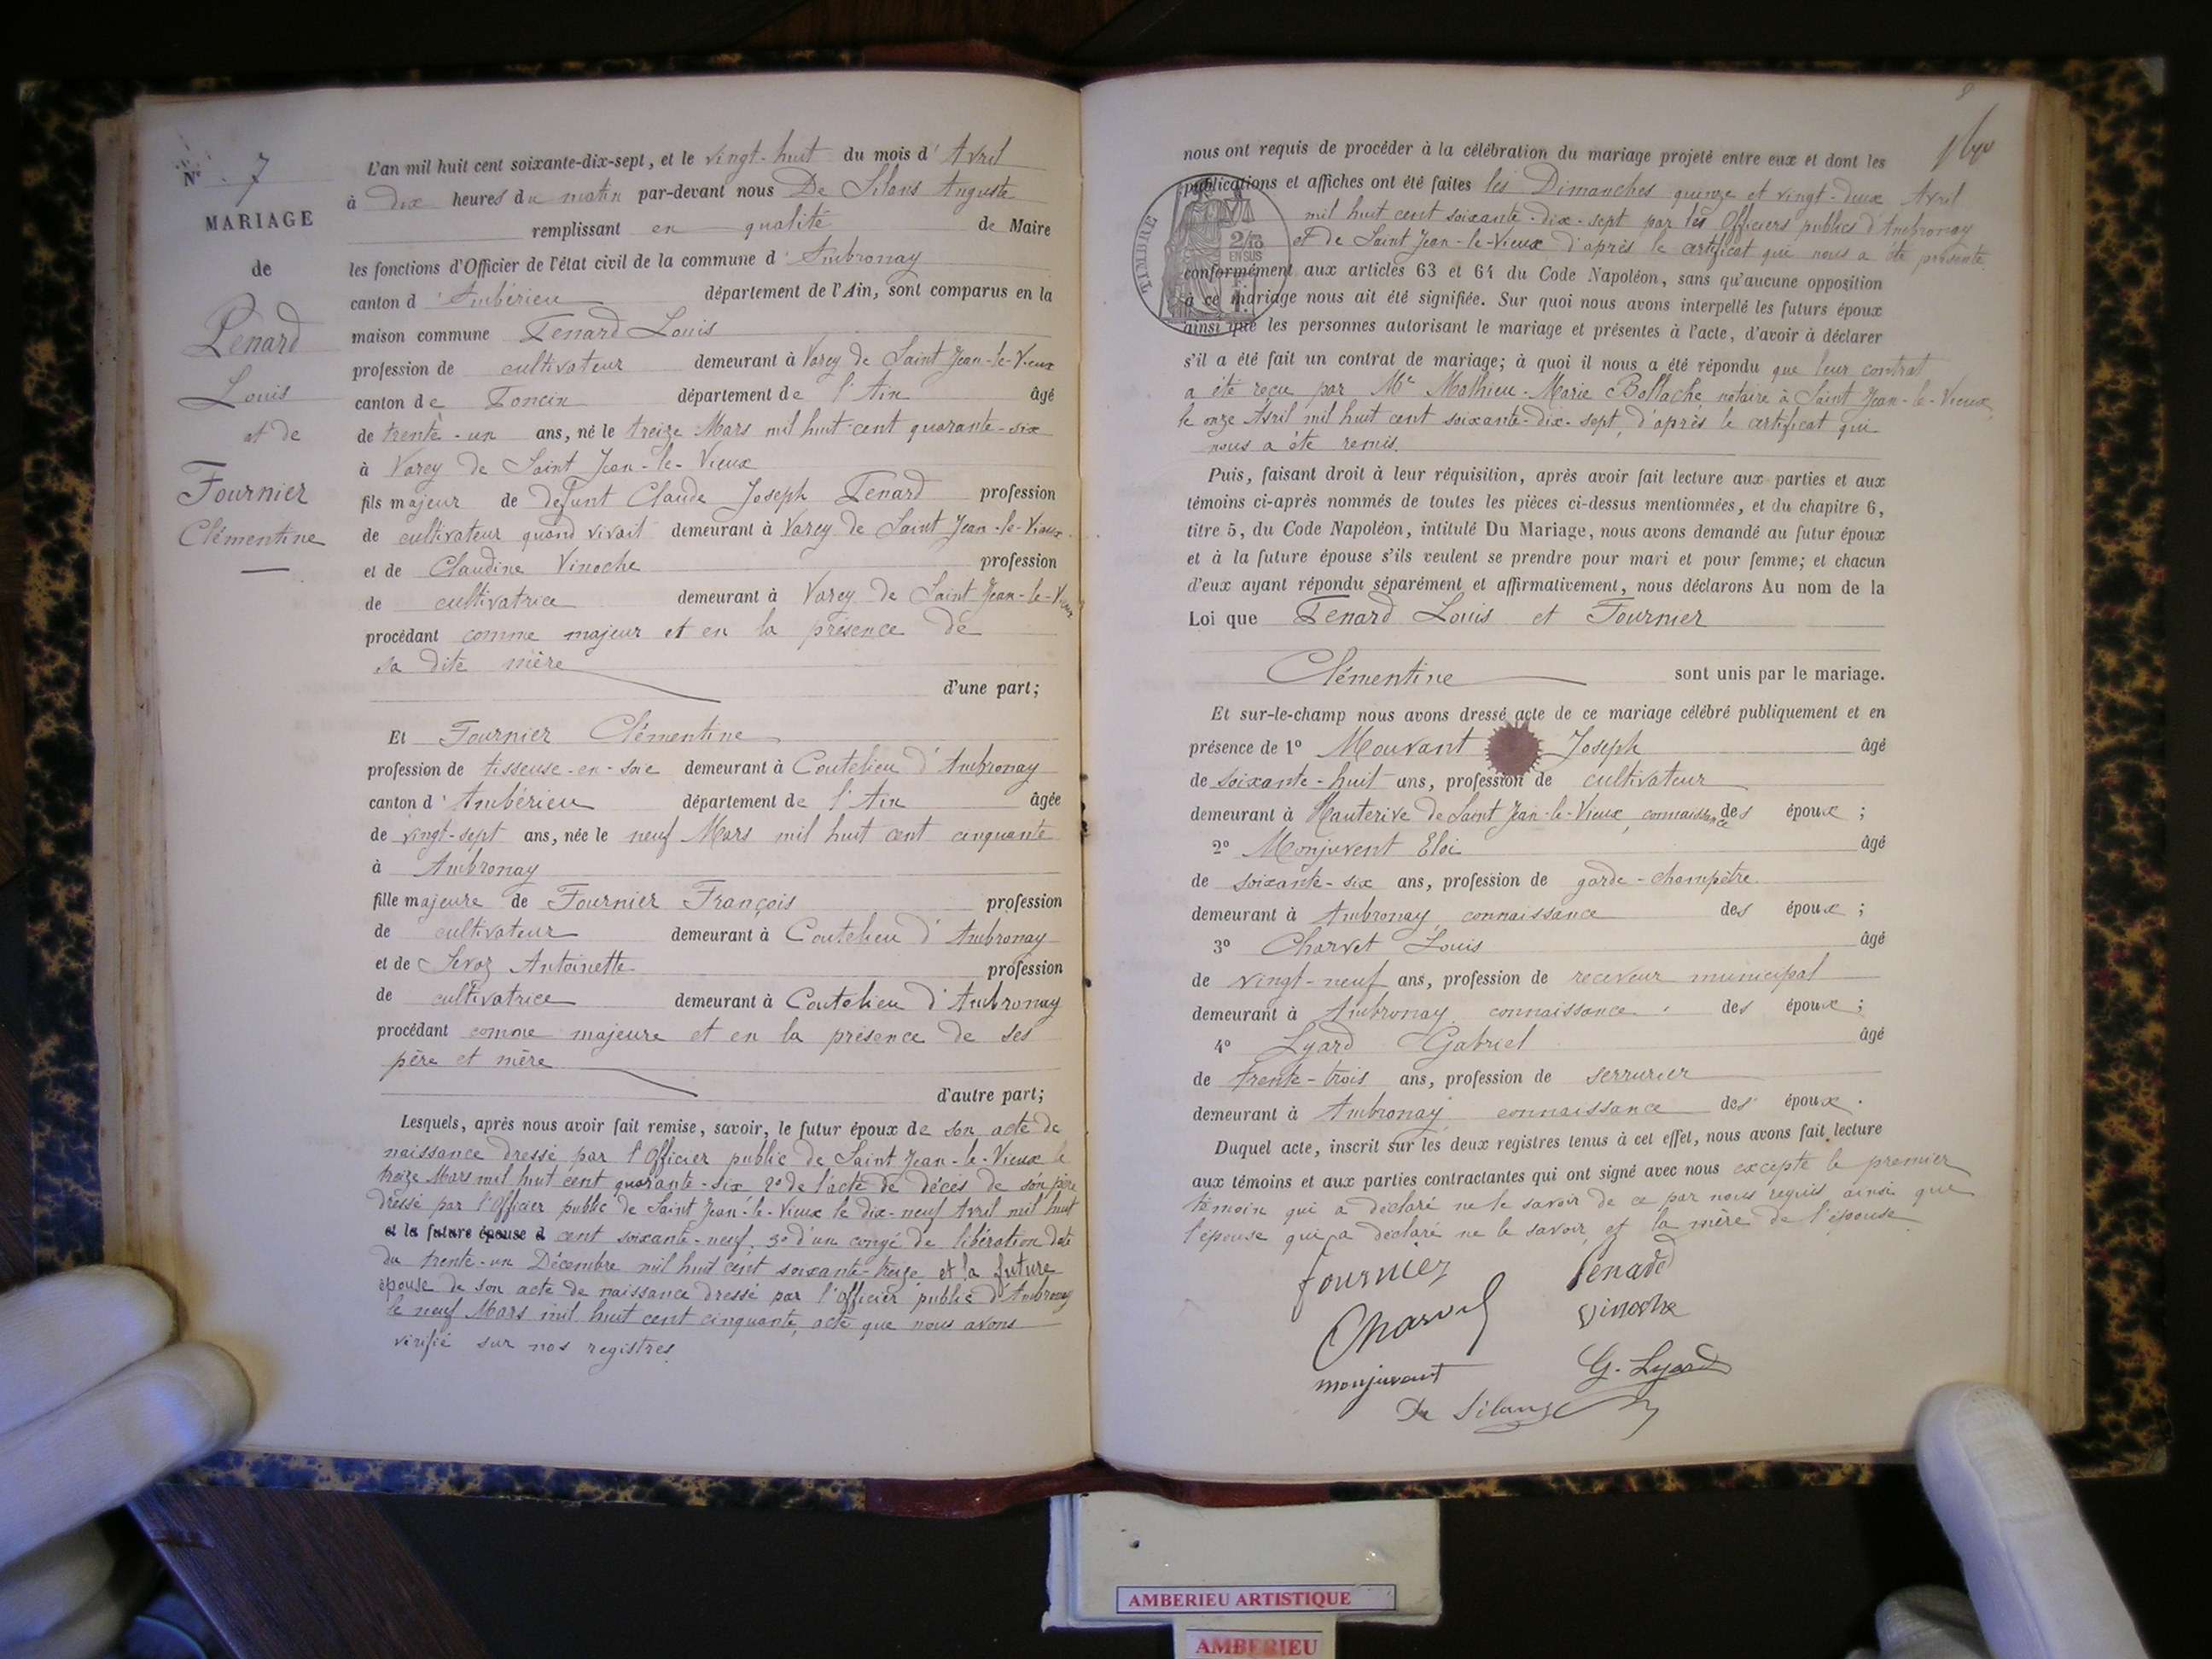 N° 7
MARIAGE
de
Penard
Louis
et de
Fournier
Clémentine
L'an mil huit cent soixante-dix-sept, et le vingt-huit du mois d'Avril
à dix heures du matin par-devant nous De Silans Auguste
remplissant en qualité de Maire
les fonctions d'Officier de l'état civil de la commune d'Ambronay
canton d'Ambérieu département de l'Ain, sont comparus en la
maison commune Penard Louis
profession de cultivateur demeurant à Varey de Saint Jean-le-Vieux
canton de Poncin département de l'Ain âgé
de trente-un ans, né le treize Mars mil huit-cent quarante-six
à Varey de Saint Jean-le-Vieux
fils majeur de défunt Claude Joseph Penard profession
de cultivateur quand vivait demeurant à Varey de Saint Jean-le-Vieux
et de Claudine Vinoche profession
de cultivatrice demeurant à Varey de Saint Jean-le-Vieux
procédant comme majeur et en la présence de
sa dite mère
d'une part;
Et Fournier Clémentine
profession de tisseuse-en-soie demeurant à Coutelieu d'Ambronay
canton d'Ambérieu département de l'Ain âgée
de vingt-sept ans, née le neuf Mars mil huit cent cinquante
à Ambronay
fille majeure de Fournier François profession
de cultivateur demeurant à Coutelieu d'Ambronay
et de Sevoz Antoinette profession
de cultivatrice demeurant à Coutelieu d'Ambronay
procédant comme majeure et en la présence de ses
père et mère
d'autre part;
Lesquels, après nous avoir fait remise, savoir, le futur époux de son acte de
naissance dressé par l'Officier public de Saint Jean-le-Vieux le
treize Mars mil huit cent quarante-six 2° de l'acte de décès de son père
dressé par l'Officier public de Saint Jean-le-Vieux le dix-neuf Avril mil huit
et la future épouse d cent soixante-neuf, 3° d'un congé de libération daté
du trente-un Décembre mil huit cent soixante-treize et la future
épouse de son acte de naissance dressé par l'Officier public d'Ambronay
le neuf Mars mil huit cent cinquante, acte que nous avons
vérifié sur nos registres.
8
nous ont requis de procéder à la célébration du mariage projeté entre eux et dont les
publications et affiches ont été faites les Dimanches quinze et vingt-deux Avril
mil huit cent soixante-dix-sept par les Officiers publics d'Ambronay
et de Saint Jean-le-Vieux d'après le certificat qui nous a été présenté
TIMBRE
2/10
EN SUS
conformément aux articles 63 et 64 du Code Napoléon, sans qu'aucune opposition
à ce mariage nous ait été signifiée. Sur quoi nous avons interpellé les futurs époux
ainsi que les personnes autorisant le mariage et présentes à l'acte, d'avoir à déclarer
s'il a été fait un contrat de mariage; à quoi il nous a été répondu que leur contrat
a été reçu par Me Mathieu-Marie Bollache notaire à Saint Jean-le-Vieux
le onze Avril mil huit cent soixante-dix-sept, d'après le certificat qui
nous a été remis.
Puis, faisant droit à leur réquisition, après avoir fait lecture aux parties et aux
témoins ci-après nommés de toutes les pièces ci-dessus mentionnées, et du chapitre 6,
titre 5, du Code Napoléon, intitulé Du Mariage, nous avons demandé au futur époux
et à la future épouse s'ils veulent se prendre pour mari et pour femme; et chacun
d'eux ayant répondu séparément et affirmativement, nous déclarons Au nom de la
Loi que Penard Louis et Fournier
Clémentine sont unis par le mariage.
Et sur-le-champ nous avons dressé acte de ce mariage célébré publiquement et en
présence de 1° Mouvant Joseph âgé
de soixante-huit ans, profession de cultivateur
demeurant à Hauterive de Saint Jean-le-Vieux, connaissance des époux;
2° Monjuvent Eloi âgé
de soixante-six ans, profession de garde-champêtre
demeurant à Ambronay connaissance des époux;
3° Charvet Louis âgé
de vingt-neuf ans, profession de receveur municipal
demeurant à Ambronay connaissance des époux;
4° Lyard Gabriel âgé
de trente-trois ans, profession de serrurier
demeurant à Ambronay connaissance des époux.
Duquel acte, inscrit sur les deux registres tenus à cet effet, nous avons fait lecture
aux témoins et aux parties contractantes qui ont signé avec nous excepté le premier
témoin qui a déclaré ne le savoir de ce par nous requis ainsi que
l'épouse qui a déclaré ne le savoir et la mère de l'épouse
fournier Penard
Charvet Vinoche
monjuvent G. Lyard
De Silans
AMBERIEU ARTISTIQUE
AMBERIEU